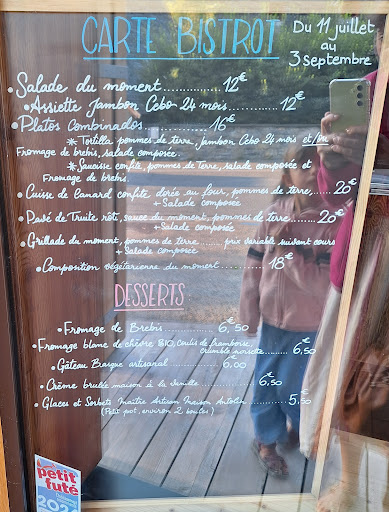 CARTE BISTROT
Du 11 juillet
au
3 septembre
• Salade du moment............ 12€
• Assiette Jambon Cebo 24 mois........... 12€
• Platos Combinados........... 16€
* Tortilla pommes de terre, Jambon Cebo 24 mois et/ou
Fromage de brebis, salade composée.
* Saucisse confite, pommes de Terre, salade composée et
Fromage de brebis.
• Cuisse de Canard confite dorée au four, pommes de terre,...... 20€
+ Salade composée
• Pavé de Truite rôti, sauce du moment, pommes de terre........ 20€
+ Salade composée
• Grillade du moment, pommes de terre........ prix variable suivant cours
+ Salade composée
• Composition végétarienne du moment......... 18€
DESSERTS
• Fromage de Brebis............ 6€,50
• Fromage blanc de chèvre BIO, Coulis de framboise,
crumble noisette........... 6€,50
• Gâteau Basque artisanal............ 6€,00
• Crème brulée maison à la Vanille............ 6€,50
• Glaces et Sorbets Maître Artisan Maison Antolin........ 5€,50
(Petit pot, environ 2 boules)
petit
futé